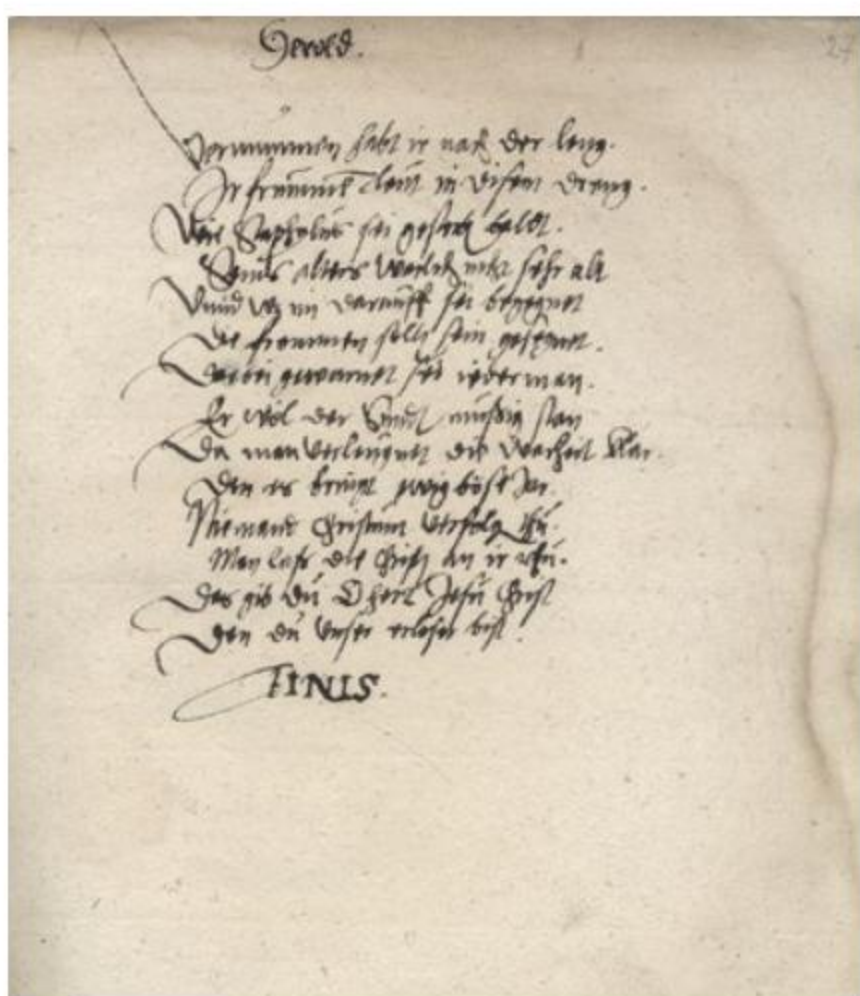 Herold.
27
Vernummen habt ir nach der leng.
Ir frümme leut in disem dreng.
Wie Staphylus sei gestorben baldt.
Seins alters warlich nit sehr alt
Vnnd im darauff sei begegnet
Die frommen solt sein gesegnet.
Darbei gewarnet sei iederman.
Er wöl der Sündt müssig stan
Da man verleugnet die warheit klar.
Den es bringt böse Jar.
Niemand Christum verfolgen thu
Man lass die Christen an ir rhu.
Das gib du O herr Jesu Christ
Den du vnser erlöser bist.
FINIS.